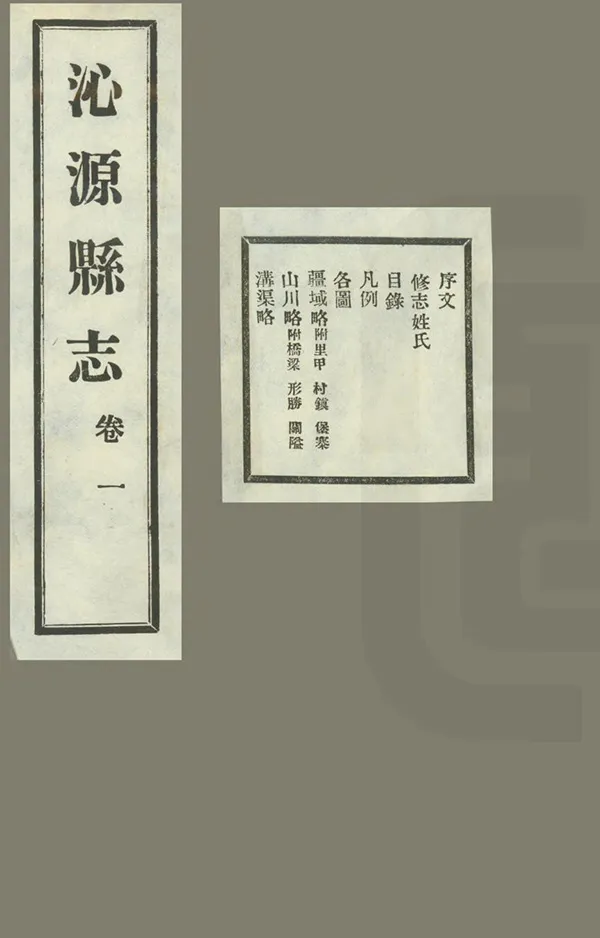 沁源縣志 卷一
序文
修志姓氏
目錄
凡例
各圖
疆域略附里甲 村鎮 堡寨
山川略附橋梁 形勝 關隘
溝渠略